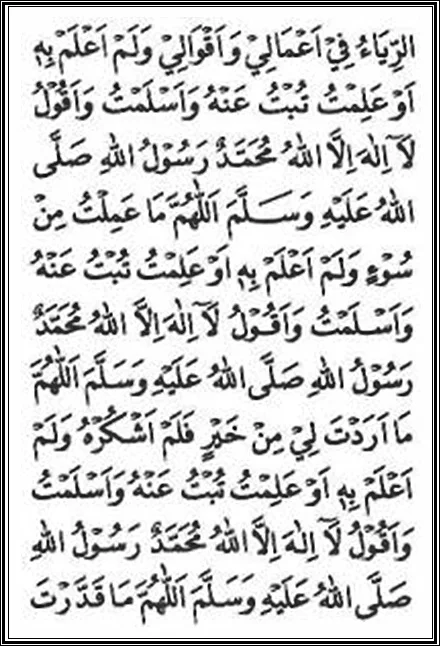 الرِّيَاءُ فِيْ اَعْمَالِيْ وَاَقْوَالِيْ وَلَمْ اَعْلَمْ بِهٖ
اَوْ عَلِمْتُ تُبْتُ عَنْهُ وَاَسْلَمْتُ وَاَقُوْلُ
لَآ اِلٰهَ اِلَّا اللهُ مُحَمَّدٌ رَسُوْلُ اللهِ صَلَّى
اللهُ عَلَيْهِ وَسَلَّمَ اَللّٰهُمَّ مَا عَمِلْتُ مِنْ
سُوْءٍ وَلَمْ اَعْلَمْ بِهٖ اَوْ عَلِمْتُ تُبْتُ عَنْهُ
وَاَسْلَمْتُ وَاَقُوْلُ لَآ اِلٰهَ اِلَّا اللهُ مُحَمَّدٌ
رَسُوْلُ اللهِ صَلَّى اللهُ عَلَيْهِ وَسَلَّمَ اَللّٰهُمَّ
مَا اَرَدْتَ لِيْ مِنْ خَيْرٍ فَلَمْ اَشْكُرْهُ وَلَمْ
اَعْلَمْ بِهٖ اَوْ عَلِمْتُ تُبْتُ عَنْهُ وَاَسْلَمْتُ
وَاَقُوْلُ لَآ اِلٰهَ اِلَّا اللهُ مُحَمَّدٌ رَسُوْلُ اللهِ
صَلَّى اللهُ عَلَيْهِ وَسَلَّمَ اَللّٰهُمَّ مَا قَدَّرْتَ